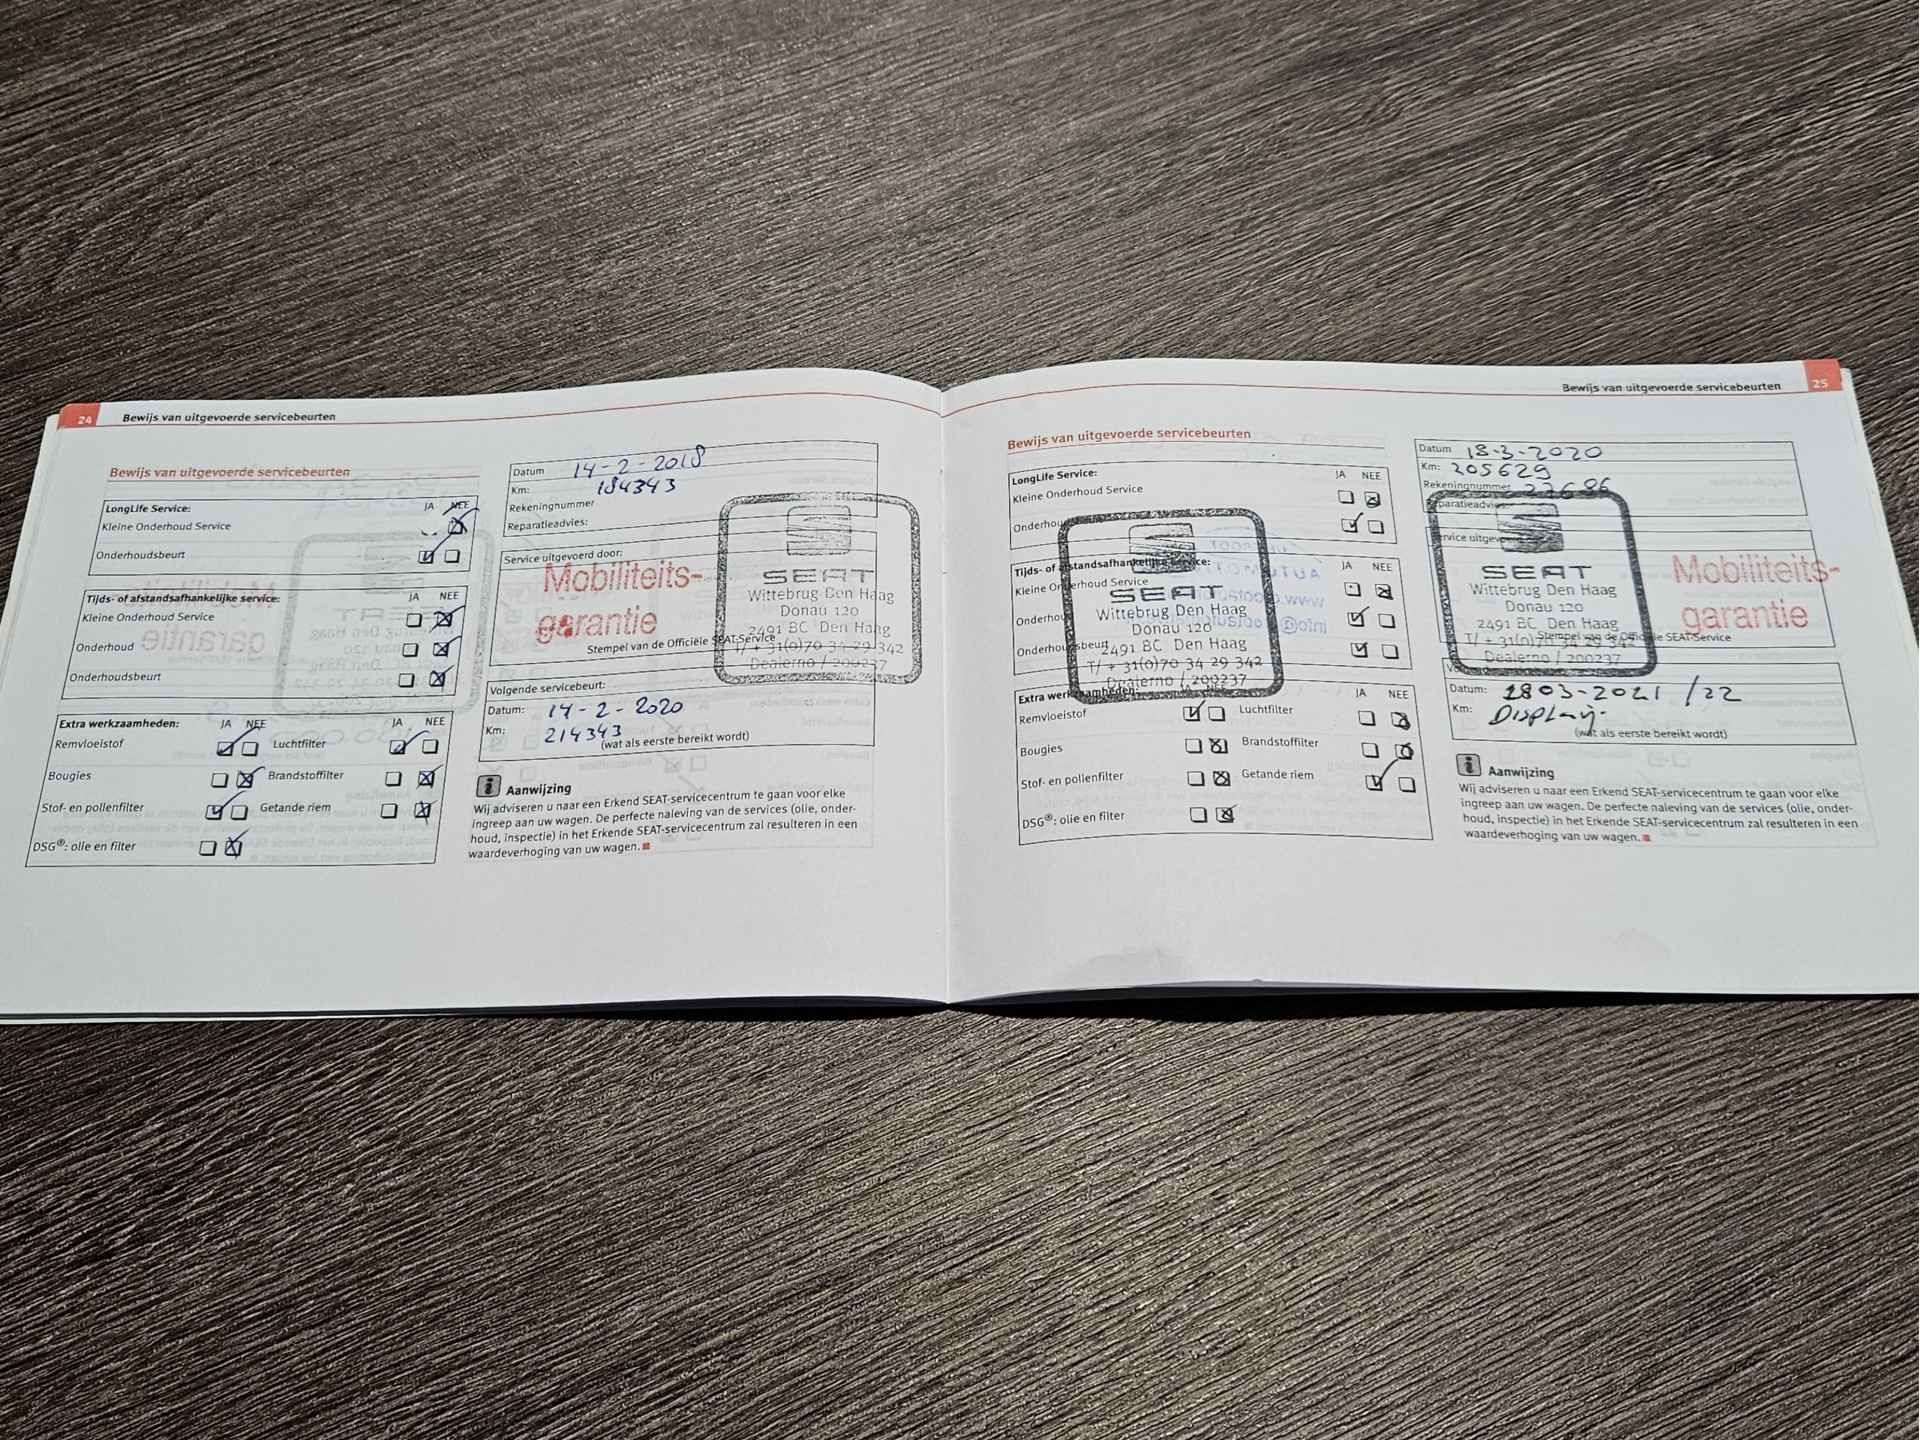 24
Bewijs van uitgevoerde servicebeurten
Bewijs van uitgevoerde servicebeurten
LongLife Service: JA NEE
Kleine Onderhoud Service
Onderhoudsbeurt
Tijds- of afstandsafhankelijke service: JA NEE
Kleine Onderhoud Service
Onderhoud
Onderhoudsbeurt
Extra werkzaamheden: JA NEE JA NEE
Remvloeistof Luchtfilter
Bougies Brandstoffilter
Stof- en pollenfilter Getande riem
DSG®: olie en filter
Datum 14-2-2018
Km: 184343
Rekeningnummer
Reparatieadvies:
Service uitgevoerd door:
Mobiliteits-
garantie
SEAT
Wittebrug Den Haag
Donau 120
2491 BC Den Haag
T/ + 31(0)70 34 29 342
Dealerno / 200237
Stempel van de Officiële SEAT-Service
Volgende servicebeurt:
Datum: 14-2-2020
Km: 214343
(wat als eerste bereikt wordt)
Aanwijzing
Wij adviseren u naar een Erkend SEAT-servicecentrum te gaan voor elke
ingreep aan uw wagen. De perfecte naleving van de services (olie, onder-
houd, inspectie) in het Erkende SEAT-servicecentrum zal resulteren in een
waardeverhoging van uw wagen.
Bewijs van uitgevoerde servicebeurten
25
Bewijs van uitgevoerde servicebeurten
LongLife Service: JA NEE
Kleine Onderhoud Service
Tijds- of afstandsafhankelijke service: JA NEE
Kleine Onderhoud Service
Onderhoudsbeurt
SEAT
Wittebrug Den Haag
Donau 120
2491 BC Den Haag
T/ + 31(0)70 34 29 342
Dealerno / 200237
Extra werkzaamheden: JA NEE
Remvloeistof Luchtfilter
Bougies Brandstoffilter
Stof- en pollenfilter Getande riem
DSG®: olie en filter
Datum 18-3-2020
Km: 205629
Rekeningnummer
Reparatieadvies
Service uitgevoerd
SEAT
Wittebrug Den Haag
Donau 120
2491 BC Den Haag
T/ + 31(0)70 34 29 342
Dealerno / 200237
Mobiliteits-
garantie
Stempel van de Officiële SEAT-Service
Datum: 1803-2021 /22
Km: Display
(wat als eerste bereikt wordt)
Aanwijzing
Wij adviseren u naar een Erkend SEAT-servicecentrum te gaan voor elke
ingreep aan uw wagen. De perfecte naleving van de services (olie, onder-
houd, inspectie) in het Erkende SEAT-servicecentrum zal resulteren in een
waardeverhoging van uw wagen.